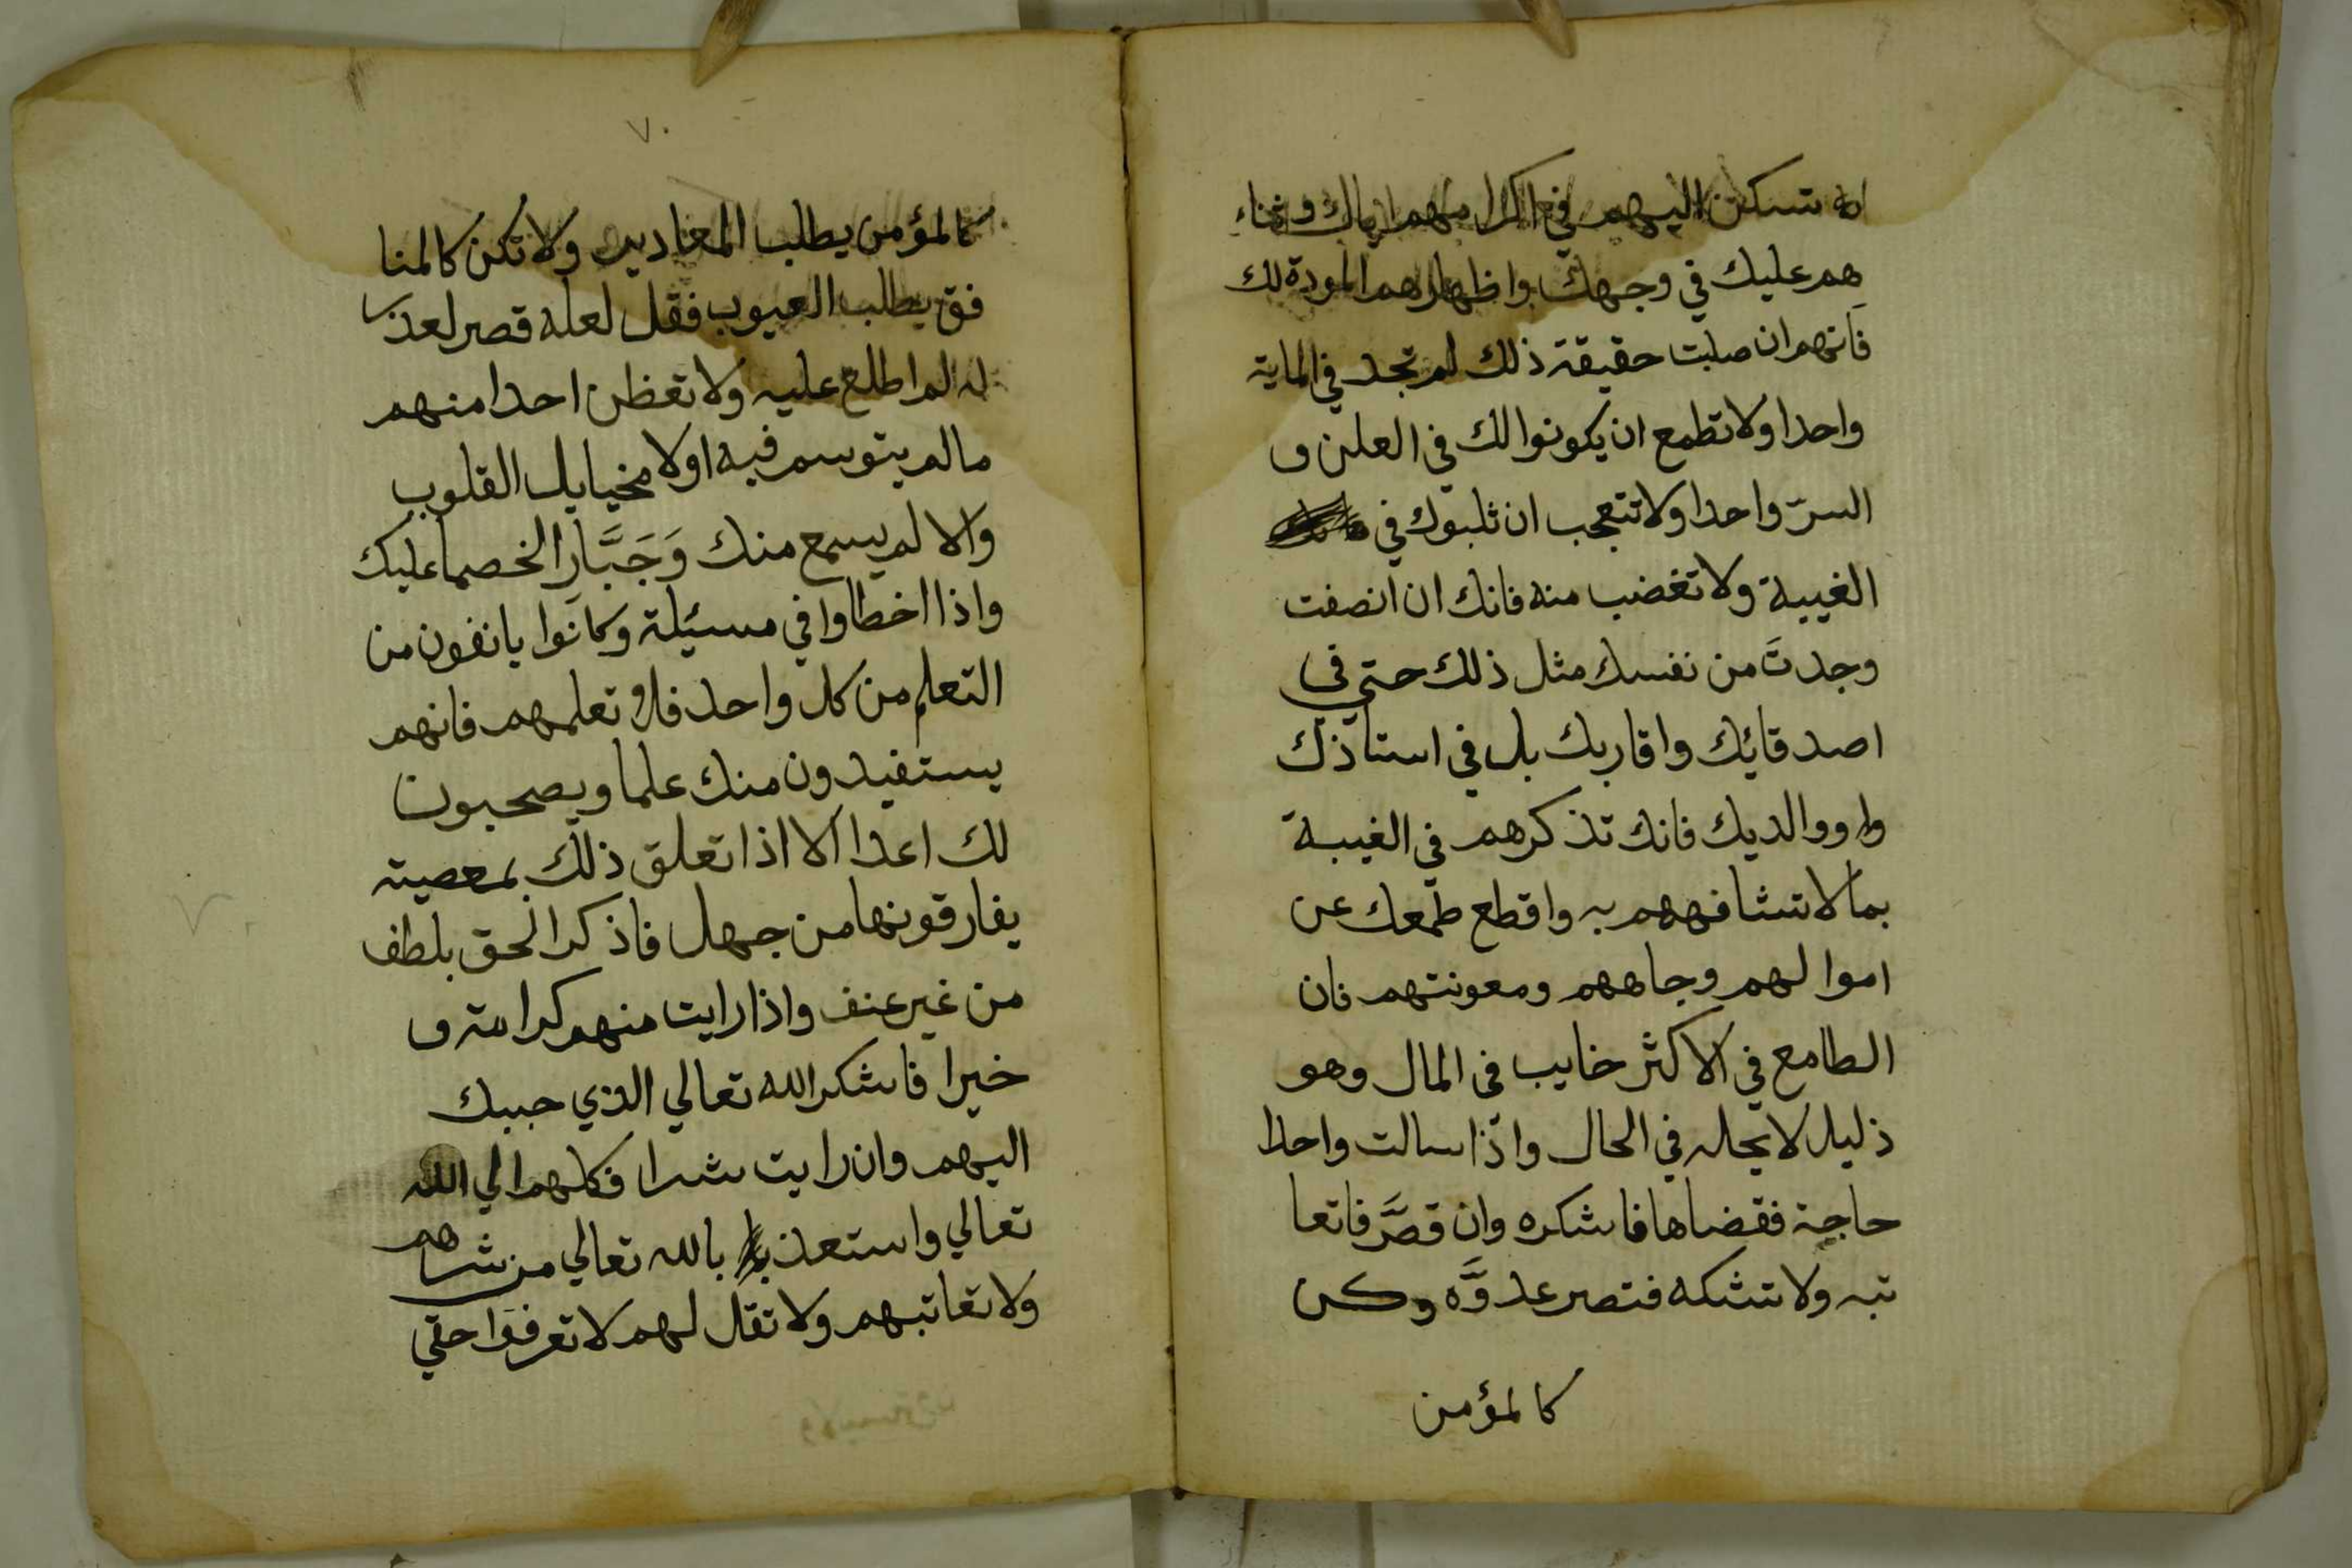 تسكن اليهم في اكرامهم اياك وثناء
هم عليك في وجهك واظهارهم المودة لك
فانهم ان صلبت حقيقة ذلك لم تجد في الماية
واحدا ولا تطمع ان يكونوا لك في العلن و
السرّ واحدا ولا تتعجب ان ثلبوك في
الغيبة ولا تغضب منه فانك ان انصفت
وجدتَ من نفسك مثل ذلك حتي في
اصدقائك واقاربك بل في استاذك
ووالديك فانك تذكرهم في الغيبة
بما لا تشافههم به واقطع طمعك عن
اموالهم وجاههم ومعونتهم فان
الطامع في الاكثر خايب في المال وهو
ذليل لا يحاله في الحال واذا سالت واحدا
حاجة فقضاها فاشكره وان قصَّر فاتعا
تبه ولا تشكه فتصر عدوَّه وكن
كالمؤمن
٧٠
كالمؤمن يطلب المعادير ولا تكن كالمنا
فق يطلب العيوب فقل لعله قصر لعذر
له لم اطلع عليه ولا تعظن احدا منهم
مالم يتوسم فيه اولا مخيايل القلوب
والا لم يسمع منك وَجَبَّارا لخصما عليك
واذا اخطاوا في مسئلة وكانوا يانفون من
التعلم من كل واحد فلا تعلمهم فانهم
يستفيدون منك علما ويصحبون
لك اعدا الا اذا تعلق ذلك بمعصيته
يفارقونها من جهل فاذكر الحق بلطف
من غير عنف واذا رايت منهم كرامة و
خيرا فاشكر الله تعالي الذي حببك
اليهم وان رايت شرا فكلهم الي الله
تعالي واستعذ بالله تعالي من شرهم
ولا تعاتبهم ولا تقل لهم لا تعرفوا حقي